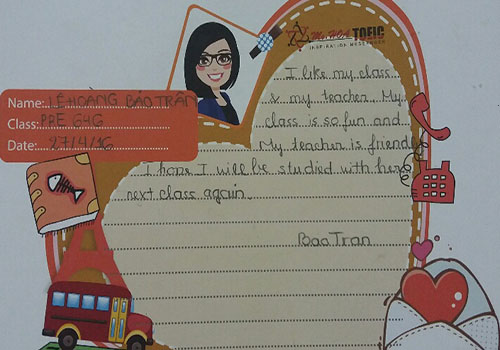 Ms HOA TOEIC
INSPIRATION MESSENGER
Name: LÊ HOÀNG BẢO TRÂN
Class: PRE 64G
Date: 27/4/16
I like my class
& my teacher. My
class is so fun and
My teacher is friendly
I hope I will be studied with her
next class again.
Bao Tran